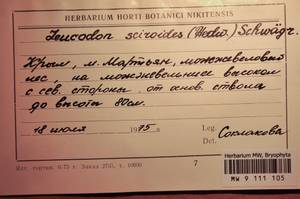 HERBARIUM HORTI BOTANICI NIKITENSIS
Leucodon sciroides (Hedw.) Schwägr.
Крым, м. Мартьян, можжевеловый
лес, на можжевельнике высоком
с сев. стороны от основ. ствола
до высоты 80см.
18 июля 1975 г. Leg.
Det. Соклакова
Herbarium MW, Bryophyta
MW 9 111 105
Ялт. гортип. 6-75 г. Заказ 2765. т. 10000 7